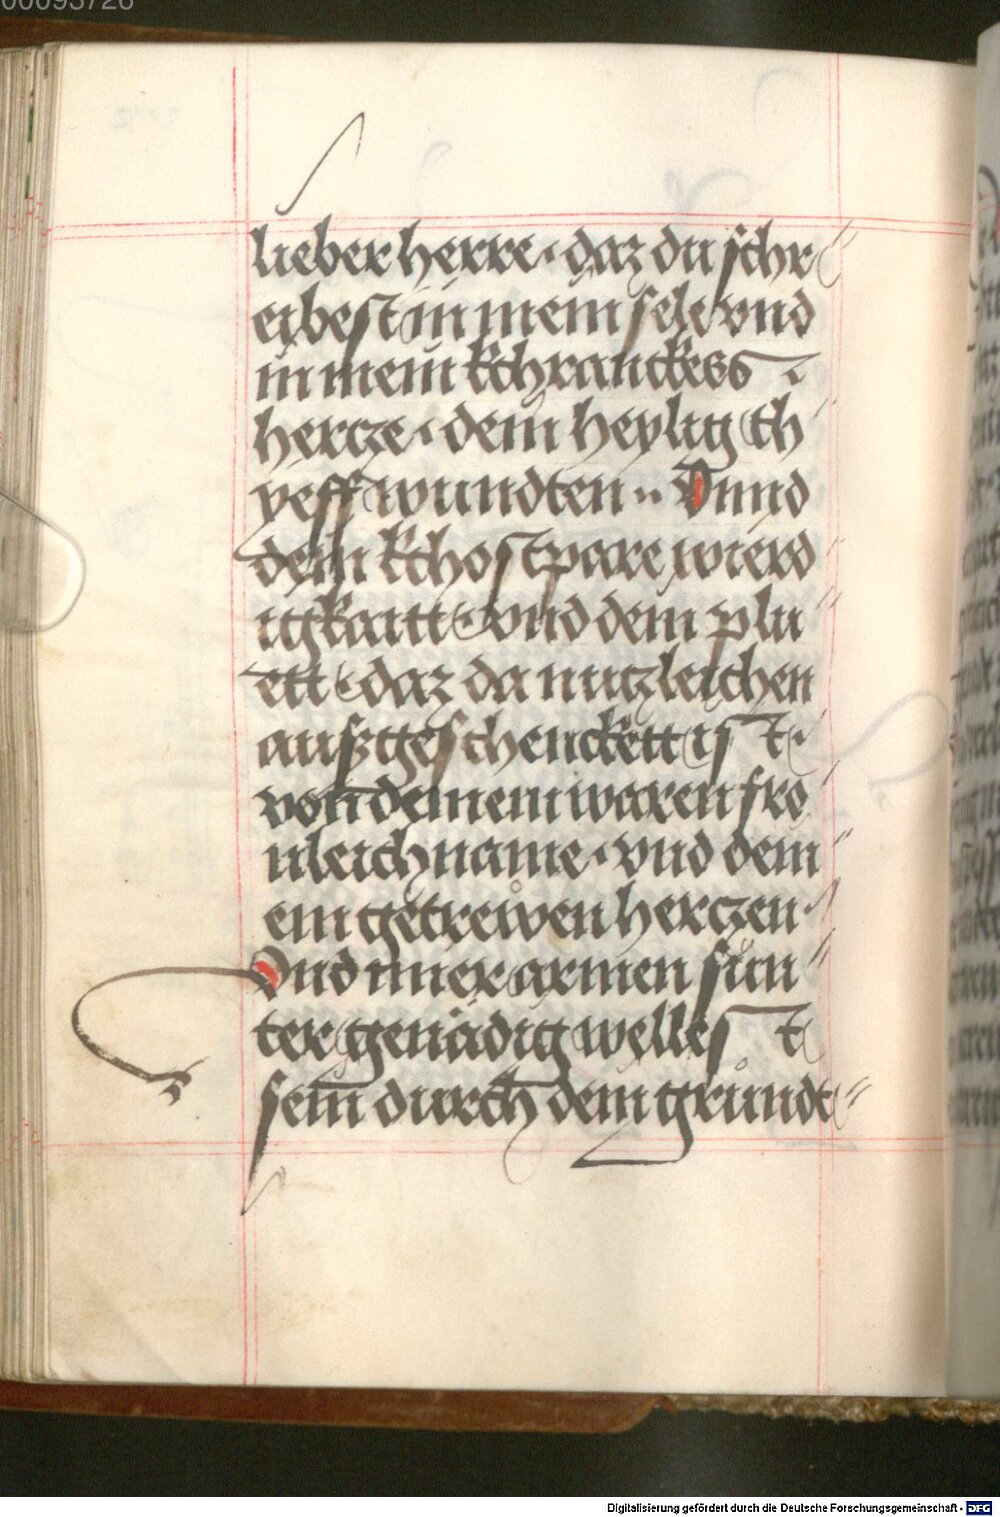 00093726
lieber herre · daz du schr
eibest in mein sele vnd
in mein kchranckess
hercze · dein heylig th
yeff wundten ·· Vnnd
dein kchostpare wierd
igkaitt · vnd dein plu
ett · daz da nutzleichen
auszgeschenckett ist ·
von deinem waren fro
nleichname · vnd dein
em getrewen herczen ·
Vnd mier armen sun
ter genädig wellest
sein durch dein grundt
Digitalisierung gefördert durch die Deutsche Forschungsgemeinschaft - DFG